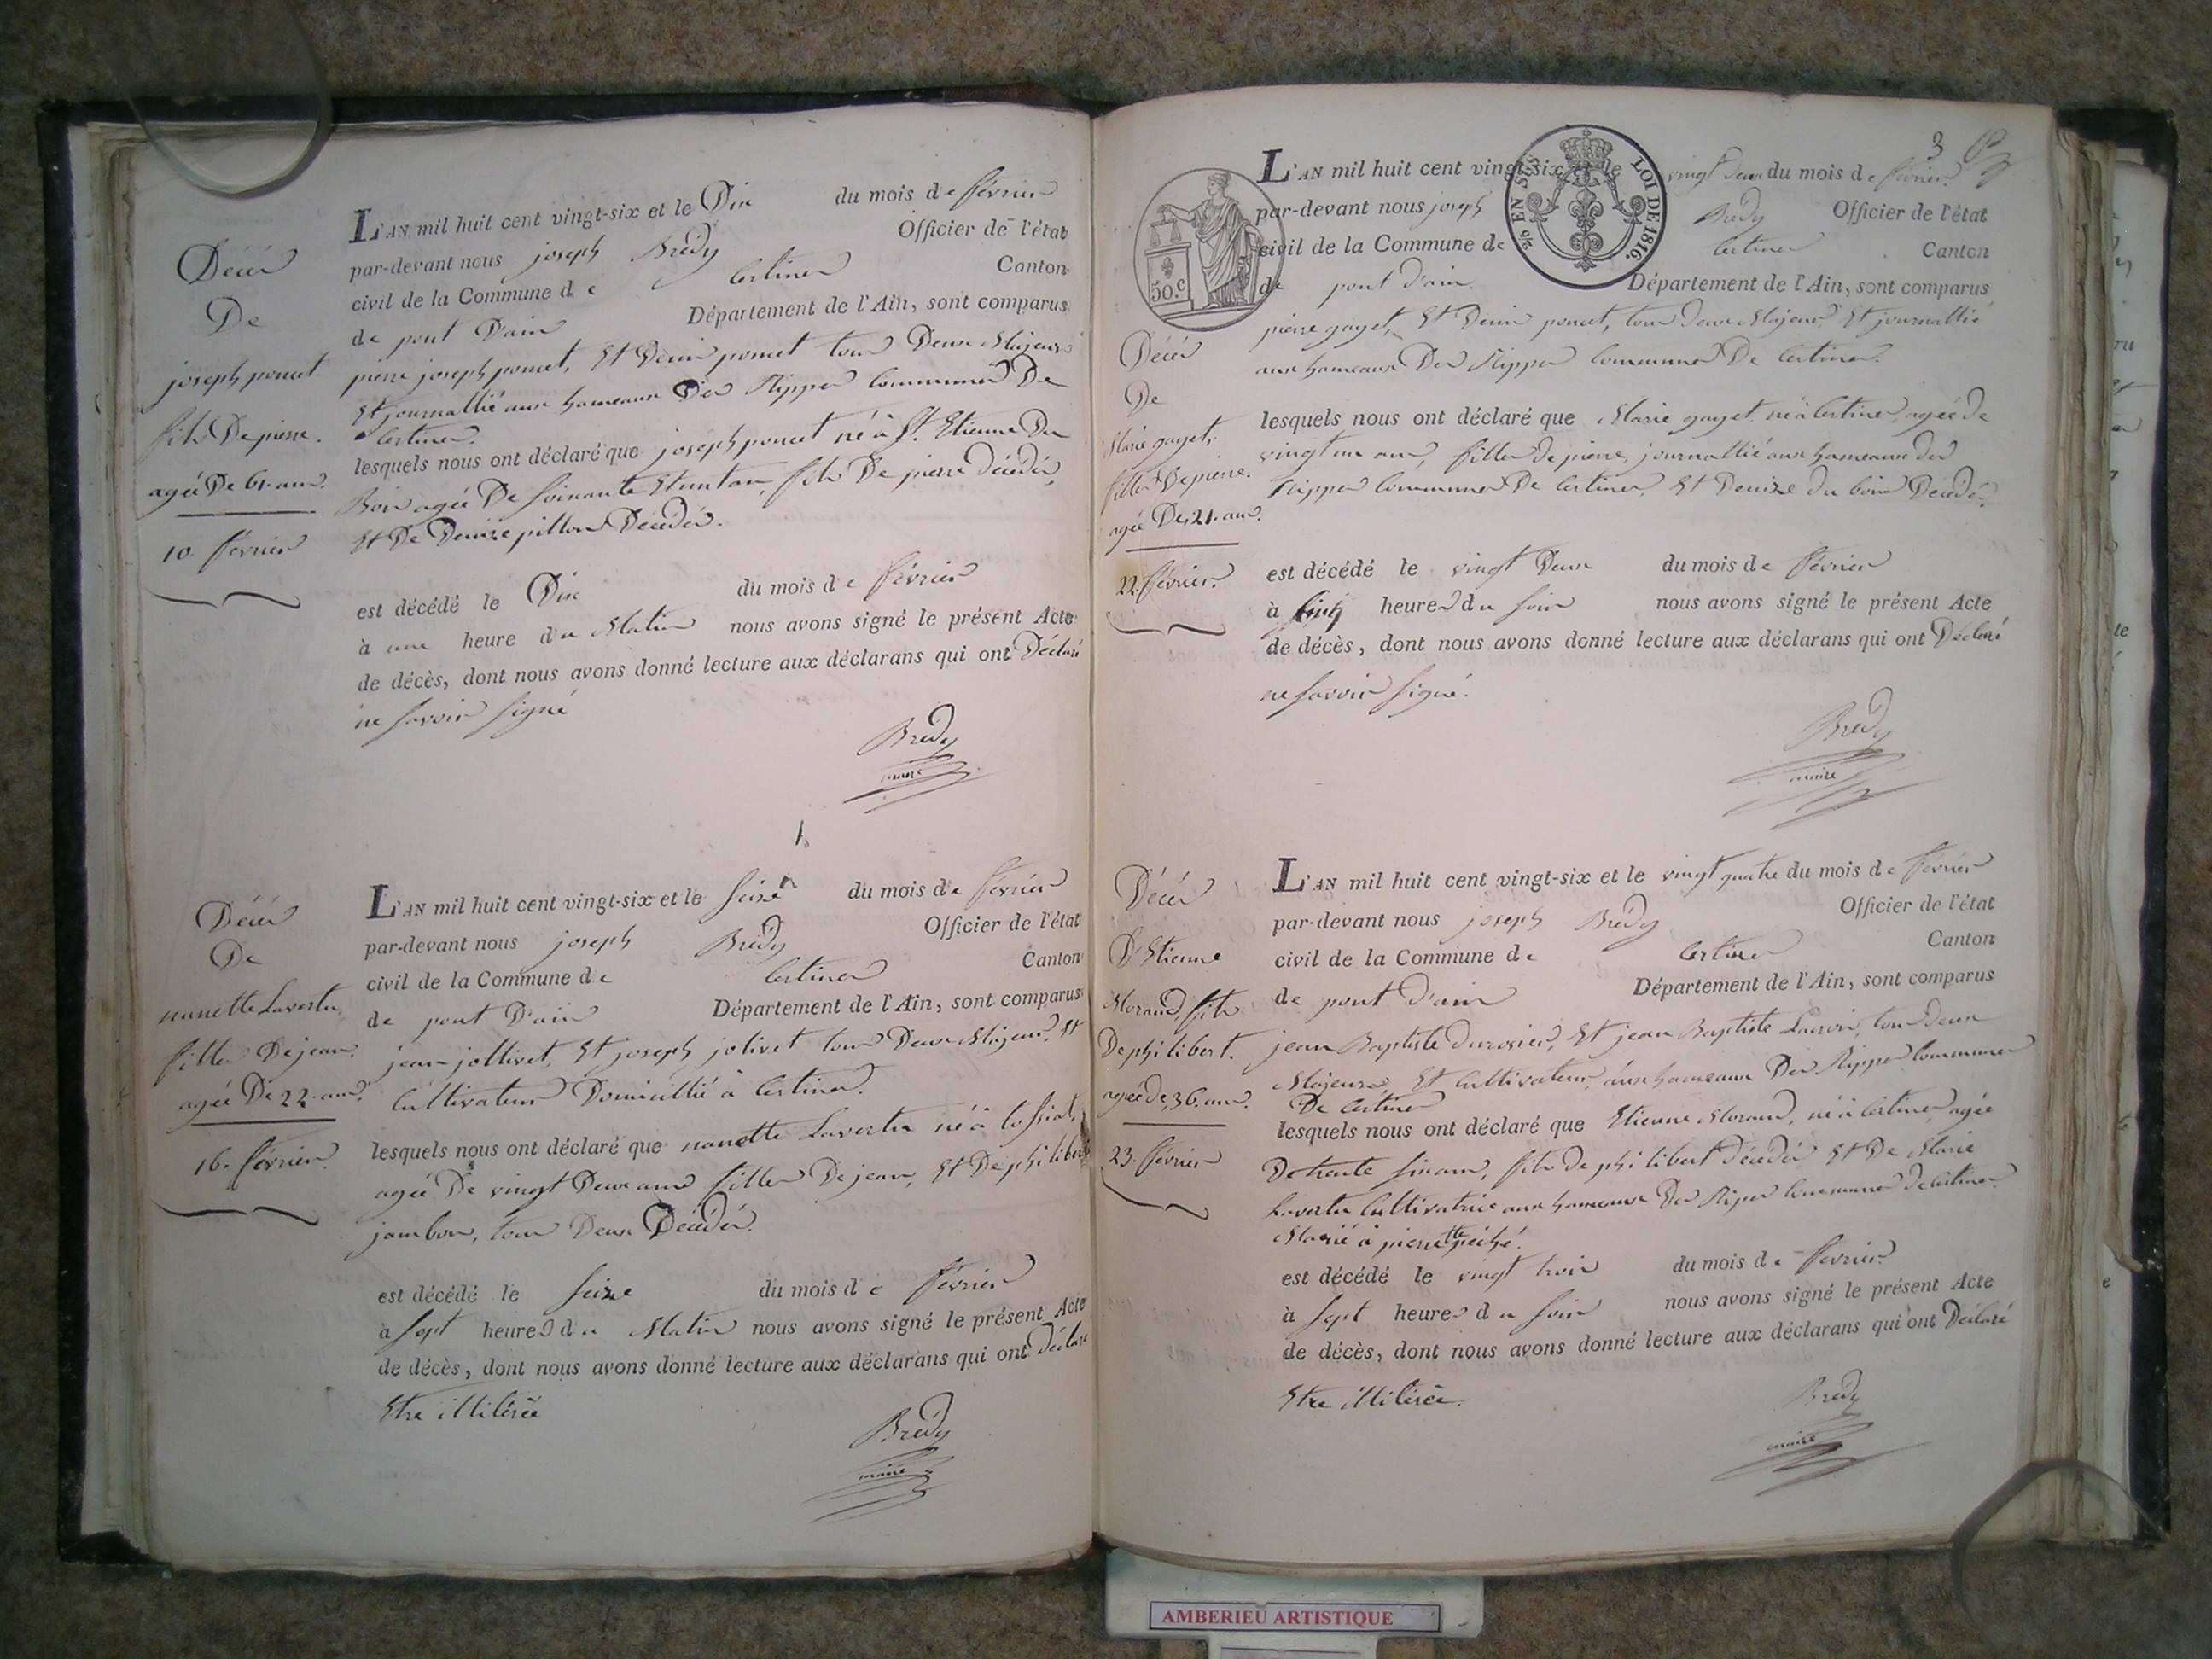 Décès
De
joseph poncet
fils De pierre.
agée De 61. ans.
10. février
L'AN mil huit cent vingt-six et le Dix du mois de février
par-devant nous joseph Bredy Officier de l'état
civil de la Commune de Certines Canton
de pont D'ain Département de l'Ain, sont comparus
pierre joseph poncet, Et Denis poncet tous Deux Majeurs
Et journallié aux hameaux Des Rippes Communes De
Certines.
lesquels nous ont déclaré que joseph poncet né à St. Etienne Du
Bois agée De soixante Et un ans, fils De pierre décédés,
Et De Denize pillon Décédés.
est décédé le Dix du mois de février
à une heure du Matin nous avons signé le présent Acte
de décès, dont nous avons donné lecture aux déclarans qui ont Déclaré
ne savoir signé
Bredy
maire
Décès
De
nanette Lavertu,
filles De jean.
agée De 22. ans.
16. février.
L'AN mil huit cent vingt-six et le seize du mois de février
par-devant nous joseph Bredy Officier de l'état
civil de la Commune de Certines Canton
de pont D'ain Département de l'Ain, sont comparus
jean jollivet, Et joseph jolivet tous Deux Majeurs, Et
Cultivateurs Domicillié à Certines.
lesquels nous ont déclaré que nanette Lavertu né à tossiat,
agée De vingt Deux ans filles De jean, Et De philiberte
jambon, tous Deux Décédés.
est décédé le seize du mois de février
à sept heures du Matin nous avons signé le présent Acte
de décès, dont nous avons donné lecture aux déclarans qui ont déclaré
Etre illitérée
Bredy
maire
3
50.c
EN SUS
LOI DE 1816.
Décès
De
Marie gayet,
filles De pierre.
agée De 21. ans.
22. février.
L'AN mil huit cent vingt-six et le vingt deux du mois de février.
par-devant nous joseph Bredy Officier de l'état
civil de la Commune de Certines Canton
de pont d'ain. Département de l'Ain, sont comparus
pierre gayet, Et Denis poncet, tous deux Majeurs, Et journallié
aux hameaux Des Rippes Communes De Certines.
lesquels nous ont déclaré que Marie gayet né à Certines, agée de
vingt un ans, filles de pierre, journallié aux hameaux des
Rippes Communes De Certines, Et Denize du bois Décédés.
est décédé le vingt Deux du mois de février
à Cinq heures du soir nous avons signé le présent Acte
de décès, dont nous avons donné lecture aux déclarans qui ont Déclaré
ne savoir signé.
Bredy
maire
Décès
D'Etienne
Morand, fils
De philibert.
agée de 36. ans.
23. février
L'AN mil huit cent vingt-six et le vingt quatre du mois de février
par-devant nous joseph Bredy Officier de l'état
civil de la Commune de Certines Canton
de pont d'ain Département de l'Ain, sont comparus
jean Baptiste Durosier, Et jean Baptiste Lacroix, tous deux
Majeurs, Et Cultivateurs, aux hameaux Des Rippes Communes
De Certines
lesquels nous ont déclaré que Etienne Morand, né à Certines agée
De trente six ans, fils de philibert décédés Et De Marie
Lavertu Cultivatrice aux hameaux Des Ripes Communes de Certines.
Marié à pierrette piché.
est décédé le vingt trois du mois de février.
à sept heures du soir nous avons signé le présent Acte
de décès, dont nous avons donné lecture aux déclarans qui ont Déclaré
Etre illitérée.
Bredy
maire
AMBERIEU ARTISTIQUE